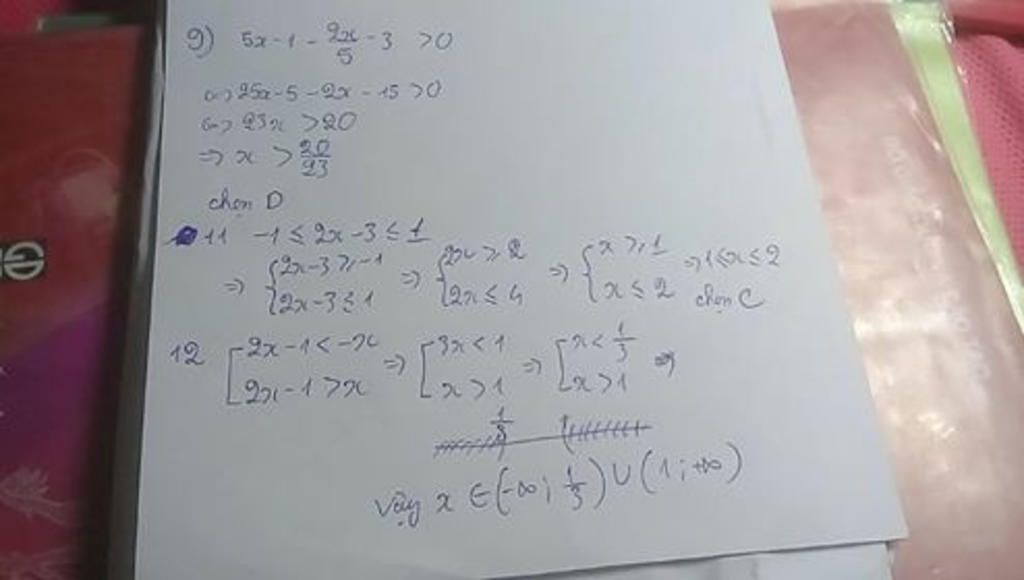 9) 5x - 1 - 2x/5 - 3 > 0
<=> 25x - 5 - 2x - 15 > 0
<=> 23x > 20
=> x > 20/23
chọn D
11 -1 ≤ 2x - 3 ≤ 1
=> { 2x - 3 ≥ -1 ; 2x - 3 ≤ 1 => { 2x ≥ 2 ; 2x ≤ 4 => { x ≥ 1 ; x ≤ 2 => 1 ≤ x ≤ 2
chọn C
12 [ 2x - 1 < -x ; 2x - 1 > x => [ 3x < 1 ; x > 1 => [ x < 1/3 ; x > 1 =>
1/3 1
Vậy x ∈ (-∞; 1/3) ∪ (1; +∞)